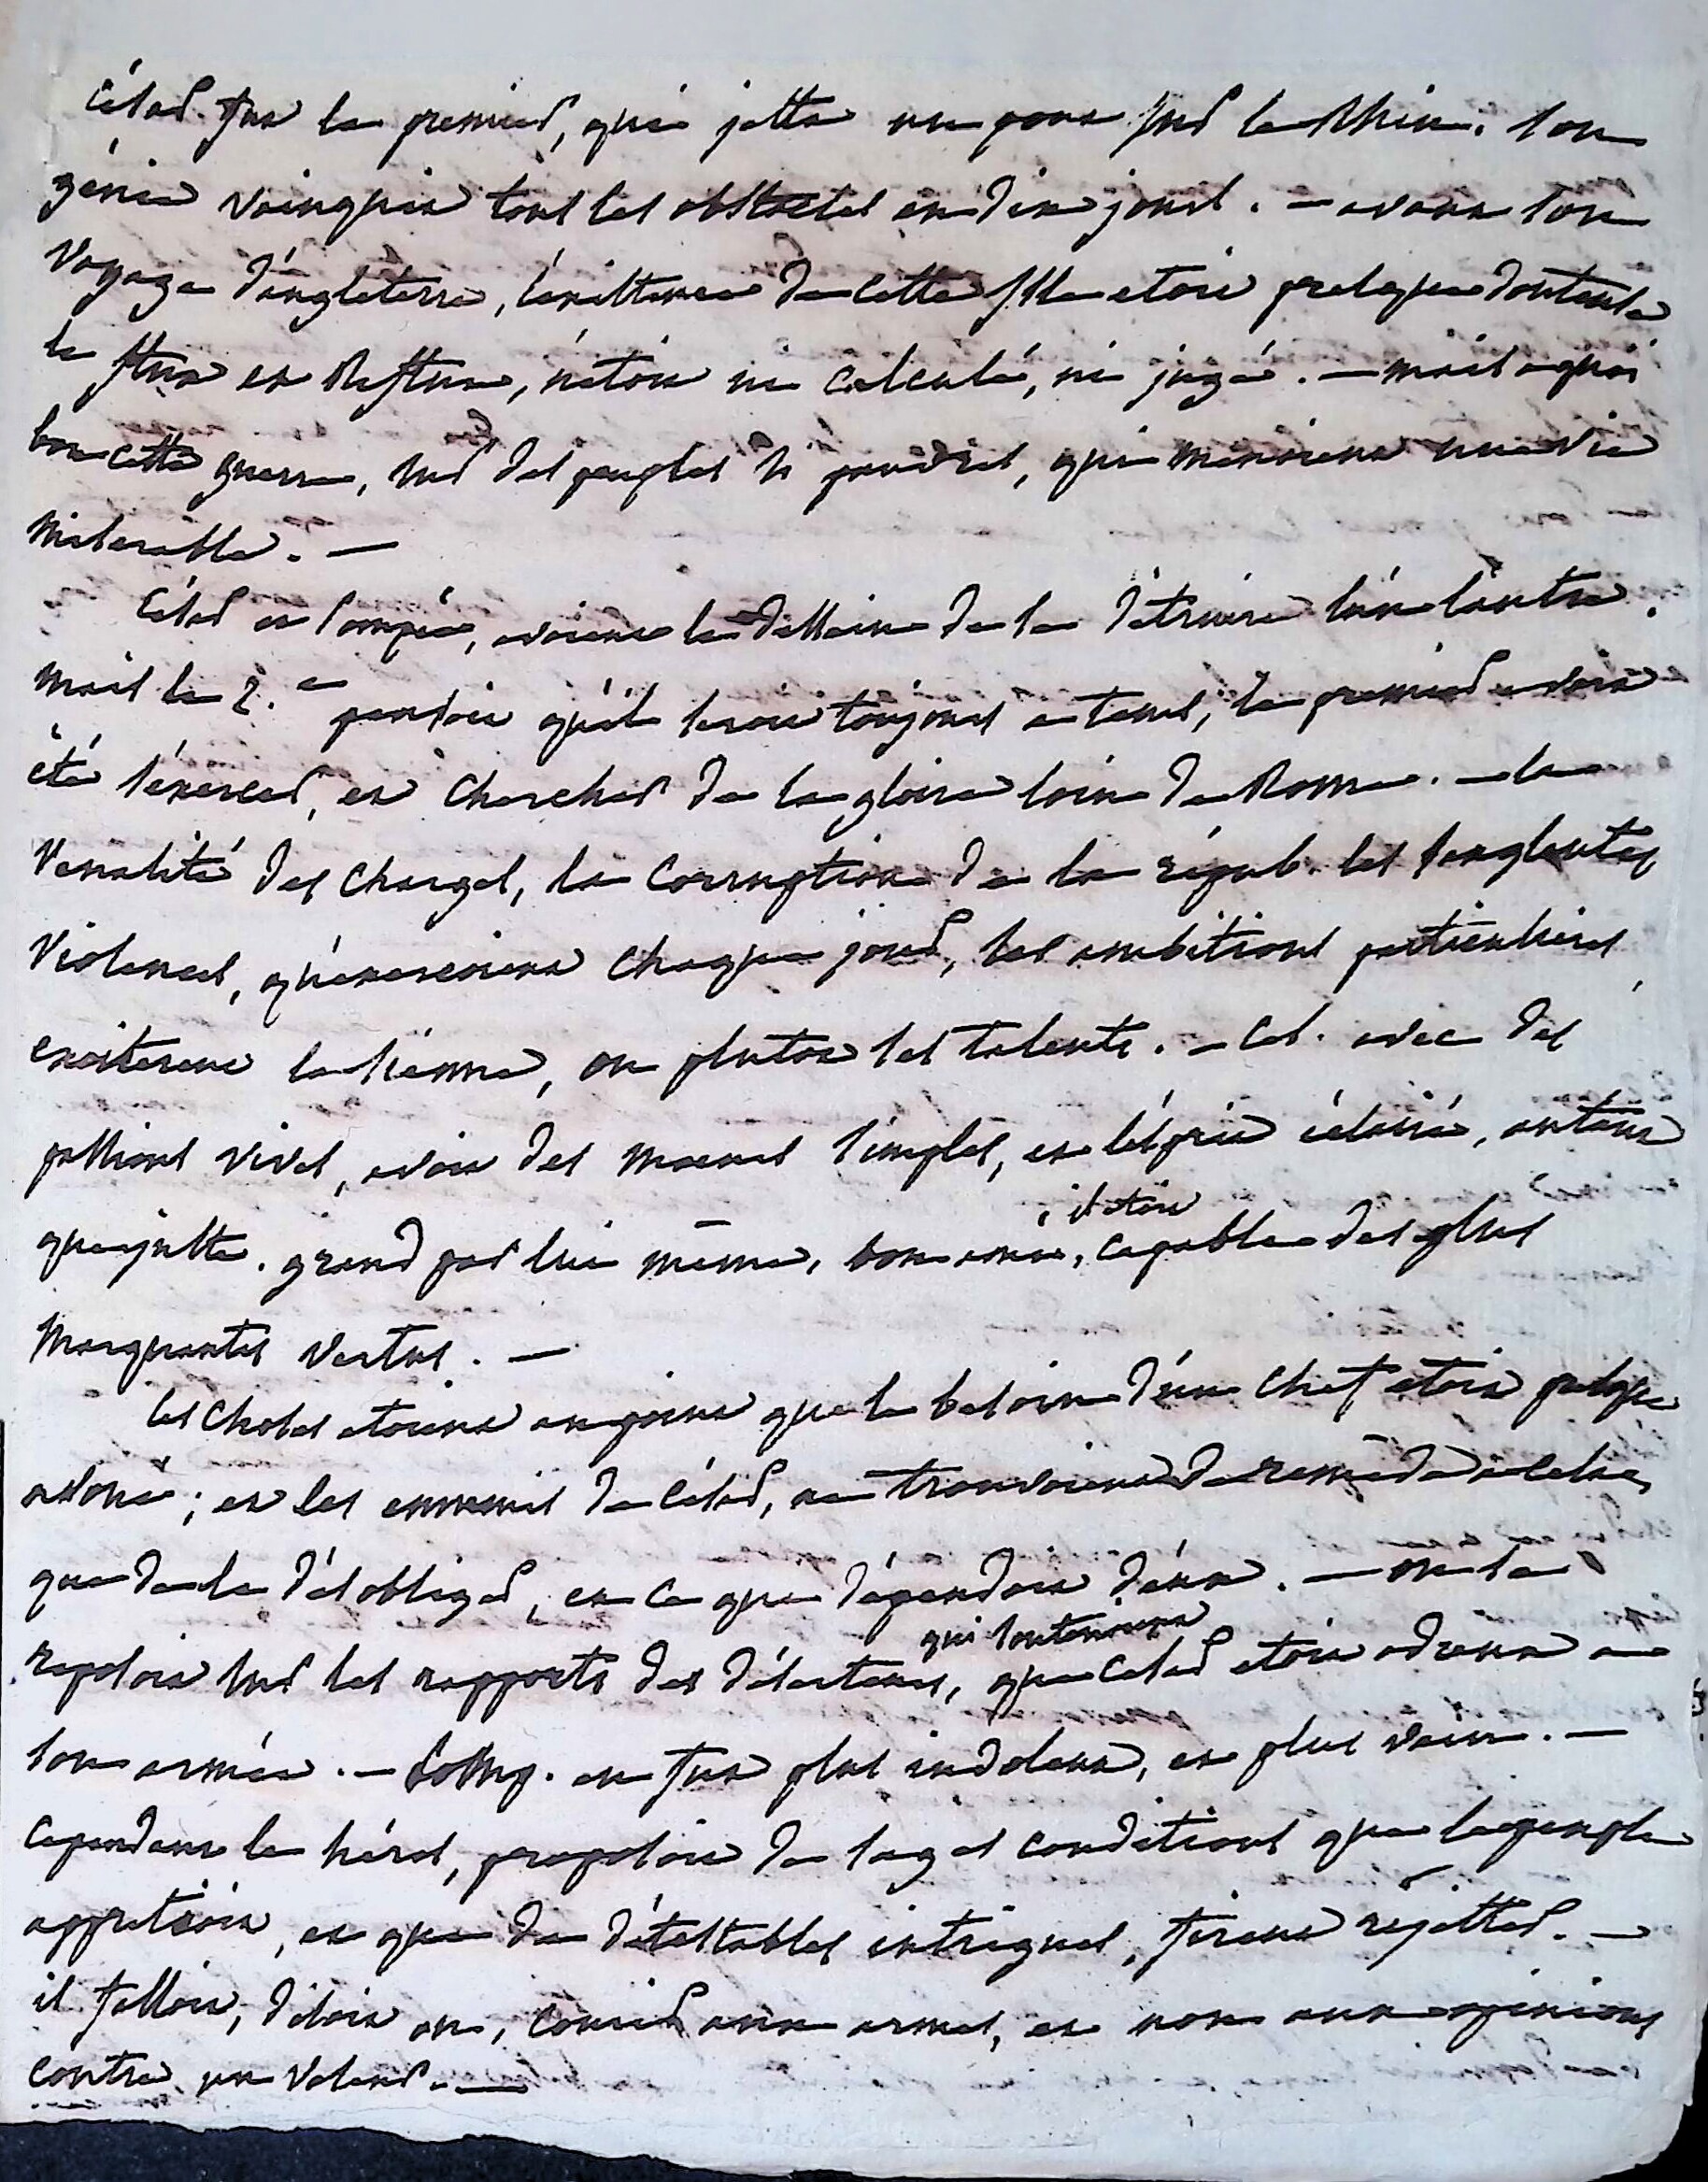 César fut le premier, qui jetta un pont sur le Rhin. son
génie vainquit tous les obstacles en dix jours. — avant son
voyage d'angleterre, l'existence de cette isle etoit presque douteuse
le flux et Reflux, n'etoit ni calculé, ni jugé. — mais a quoi
bon cette guerre, sur des peuples si pauvres, qui menoient une vie
miserable. —
César et Pompée, avoient le dessein de se détruire l'un l'autre.
mais le 2.e pensoit qu'il seroit toujours a tems, le premier avoit
été s'exercer, et chercher de la gloire loin de Rome. — la
venalité des charges, la corruption de la répub. les sanglantes
violences, qu'exercoient chaque jour, les ambitions particulieres
exciterent la sienne, ou plutot ses talents. — Ces. avec des
passions vives, avoit des moeurs simples, et l'esprit éclairé, autant
que juste. grand par lui même, bon ami, il etoit capable des plus
marquantes vertus. —
les choses etoient au point que le besoin d'un chef etoit presque
avoué; et les ennemis de César, ne trouvoient de remede a cela,
que de le désobliger, en ce que dépendoit d'eux. — on se
reposoit sur les rapports des déserteurs, qui soutenoient que César etoit odieux a
son armée. — Pomp. en fut plus indolent, et plus vain. —
cependant le héros, proposoit de sages conditions que le peuple
appretioit, et que de détestables intrigues, firent rejetter. —
il falloit, disoit on, courir aux armes, et non aux opinions
contre un voleur. —